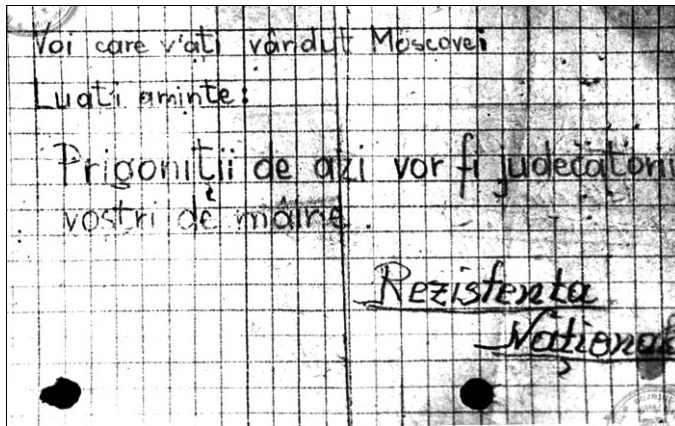 Voi care v'ați vândut Moscovei
Luați aminte:
Prigoniții de azi vor fi judecătorii
vostri de mâine.
Rezistenta
Național